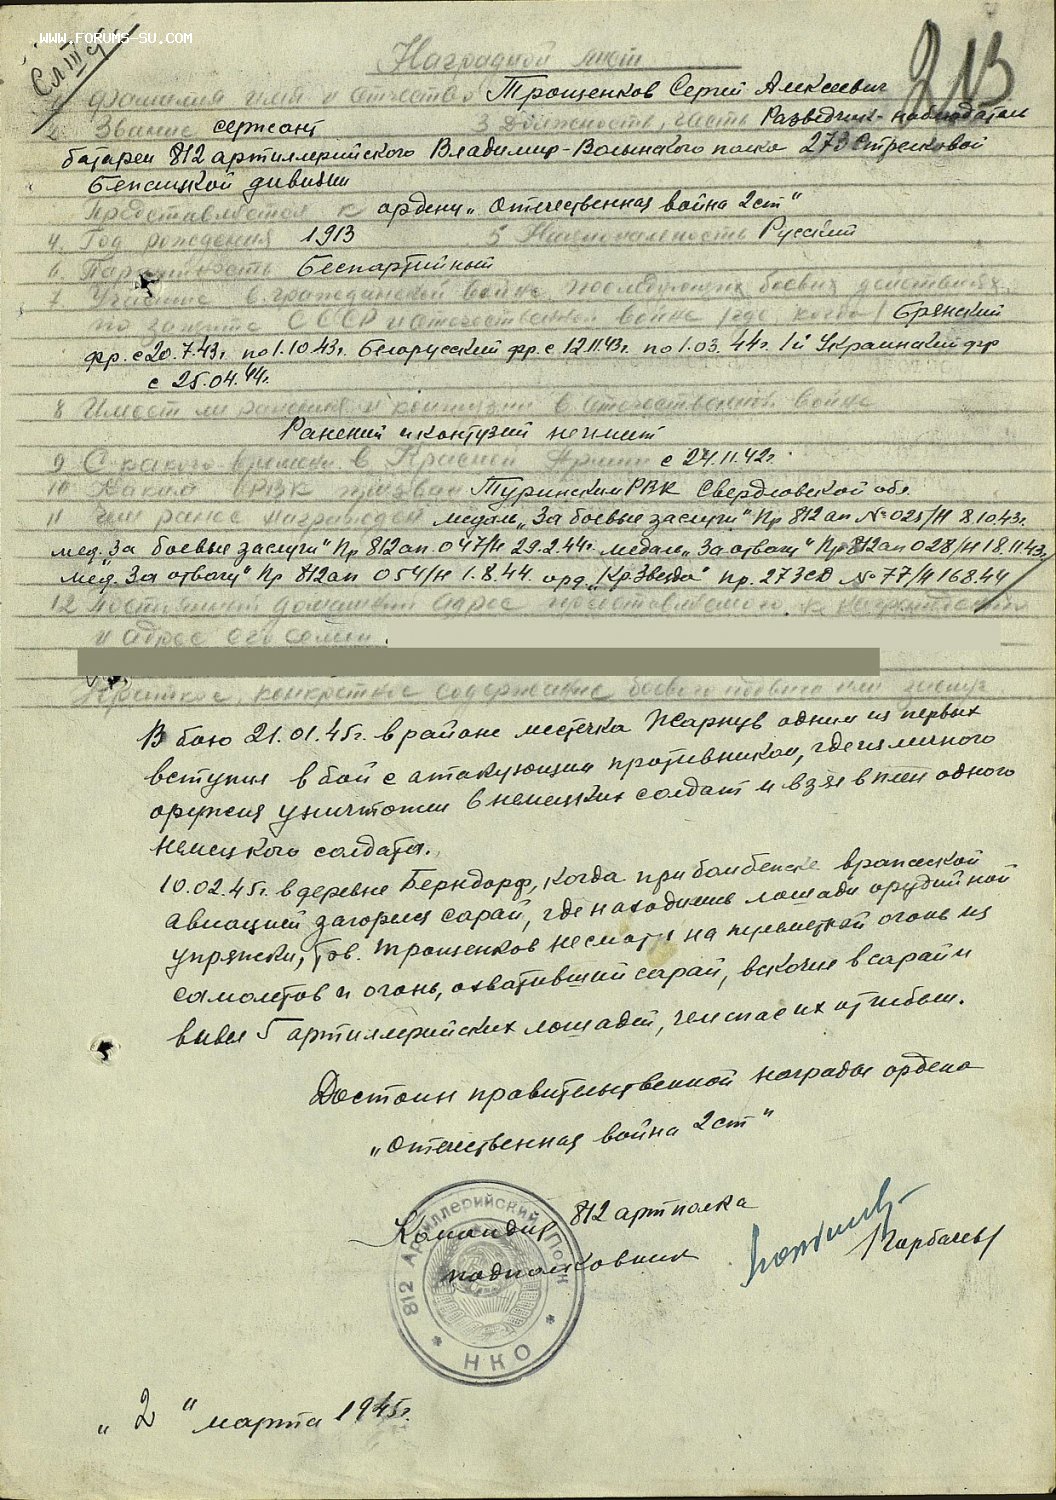 WWW.FORUMS-SU.COM
Сл III ст
213
Наградной лист
1 Фамилия имя и отчество Трощенков Сергей Алексеевич
2. Звание сержант 3 Должность, часть Разведчик-наблюдатель
батареи 812 артиллерийского Владимир-Волынского полка 273 Стрелковой
Бежицкой дивизии
Представляется к ордену „Отечественная война 2 ст"
4. Год рождения 1913 5 Национальность Русский
6. Партийность Беспартийный
7. Участие в гражданской войне, последующих боевых действиях
по защите СССР и отечественной войне (где, когда) Брянский
фр. с 20.7.43г. по 1.10.43г. Белорусский фр. с 12.11.43г. по 1.03.44г. 1й Украинский фр
с 25.04.44г.
8 Имеет ли ранения и контузии в отечественной войне
Ранений и контузий не имеет
9 С какого времени в Красной Армии с 24.11.42г.
10 Каким РВК призван Туринским РВК Свердловской обл
11 Чем ранее награжден медаль „За боевые заслуги" Пр 812 ап № 025/Н 8.10.43г.
мед. „За боевые заслуги" Пр 812 ап 047/Н 29.2.44г. медаль „За отвагу" Пр 812 ап 028/Н 18.11.43г
мед. „За отвагу" Пр 812 ап 054/Н 1.8.44 орд. „Кр Звезда" пр. 273 СД № 77/Н 16.8.44
12 Постоянный домашний адрес представляемого к награждению
и адрес его семьи.
Краткое, конкретное содержание боевого подвига или заслуг
В бою 21.01.45г. в районе местечка Жарнув одним из первых
вступил в бой с атакующим противником, где из личного
оружия уничтожил 6 немецких солдат и взял в плен одного
немецкого солдата.
10.02.45г. в деревне Берндорф, когда при бомбежке вражеской
авиацией загорелся сарай, где находились лошади орудийной
упряжки, тов. Трощенков несмотря на пулеметный огонь из
самолетов и огонь, охвативший сарай, вскочил в сарай и
вывел 5 артиллерийских лошадей, чем спас их от гибели.
Достоин правительственной награды ордена
„Отечественная война 2 ст"
Командир 812 артполка
подполковник
812 Артиллерийский Полк
НКО
„ 2 " марта 1945г.